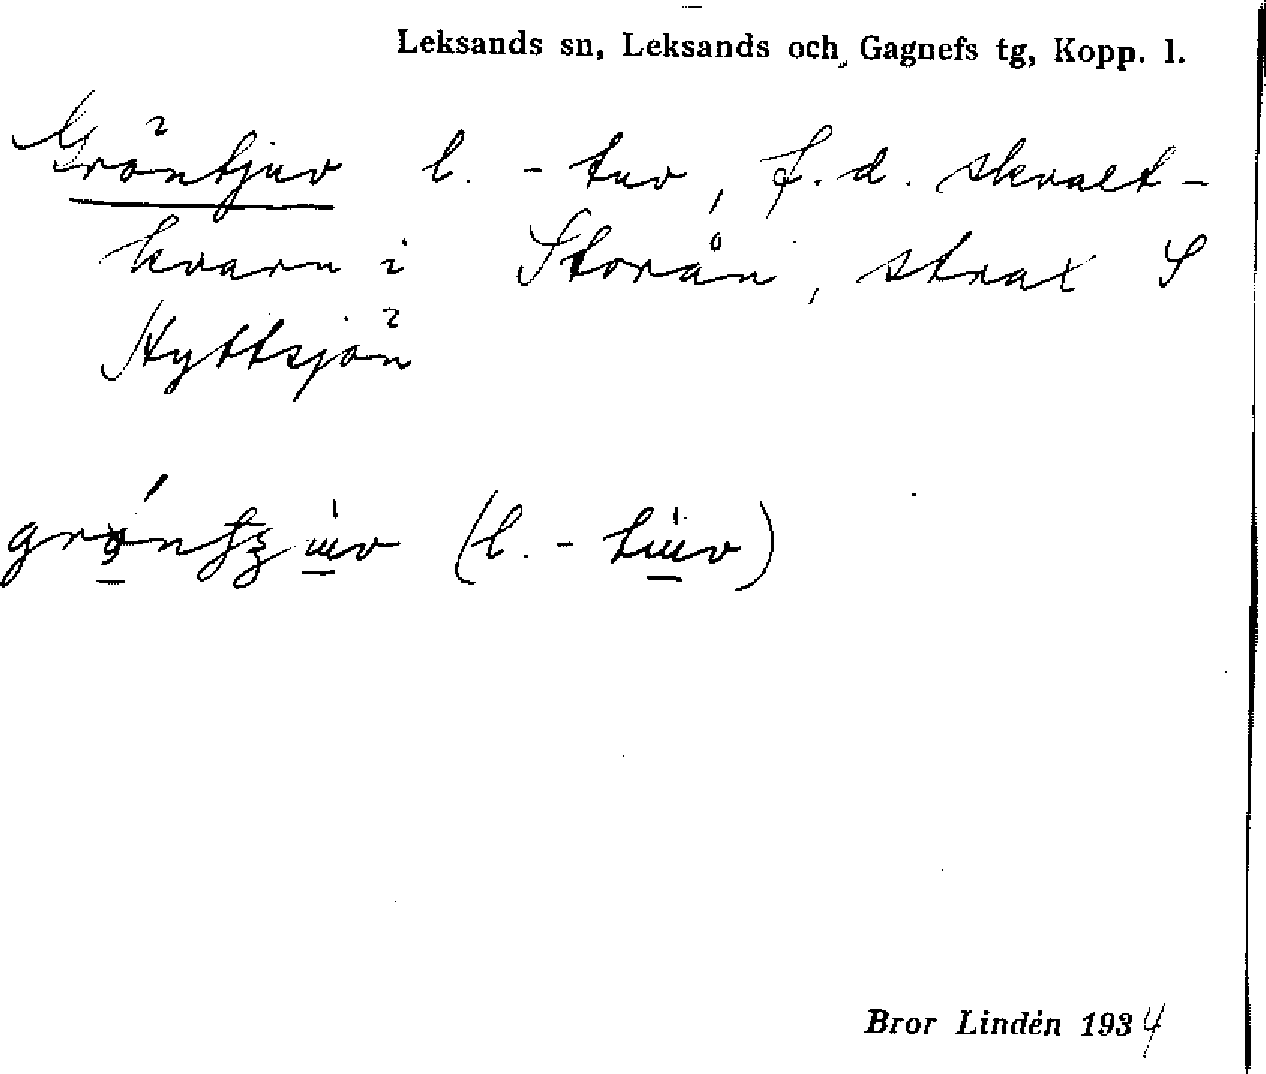 Leksands sn, Leksands och Gagnefs tg, Kopp. l.
Gröntjuv l. -tuv, f.d. skvalt-
kvarn i Storån, strax S
Hyttsjön
(l. -
Bror Lindén 1934